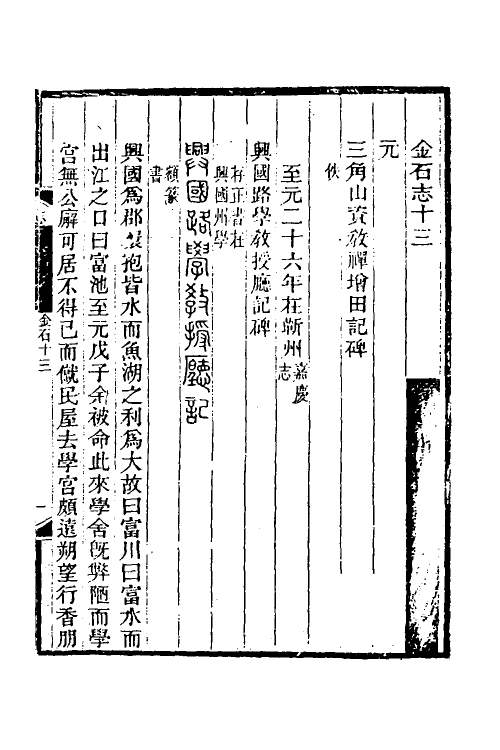 金石志十三
元
三角山資教禪增田記碑
佚
至元二十六年在蘄州嘉慶志
興國路學教授廳記碑
存正書在
興國州學
興國路學教授廳記
額篆
書
興國為郡環抱皆水而魚湖之利為大故曰富川曰富水而
出江之口曰富池至元戊子余被命此來學舍既弊陋而學
官無公廨可居不得已而僦民屋去學宮頗遠朔望行香朋
金石十三
一